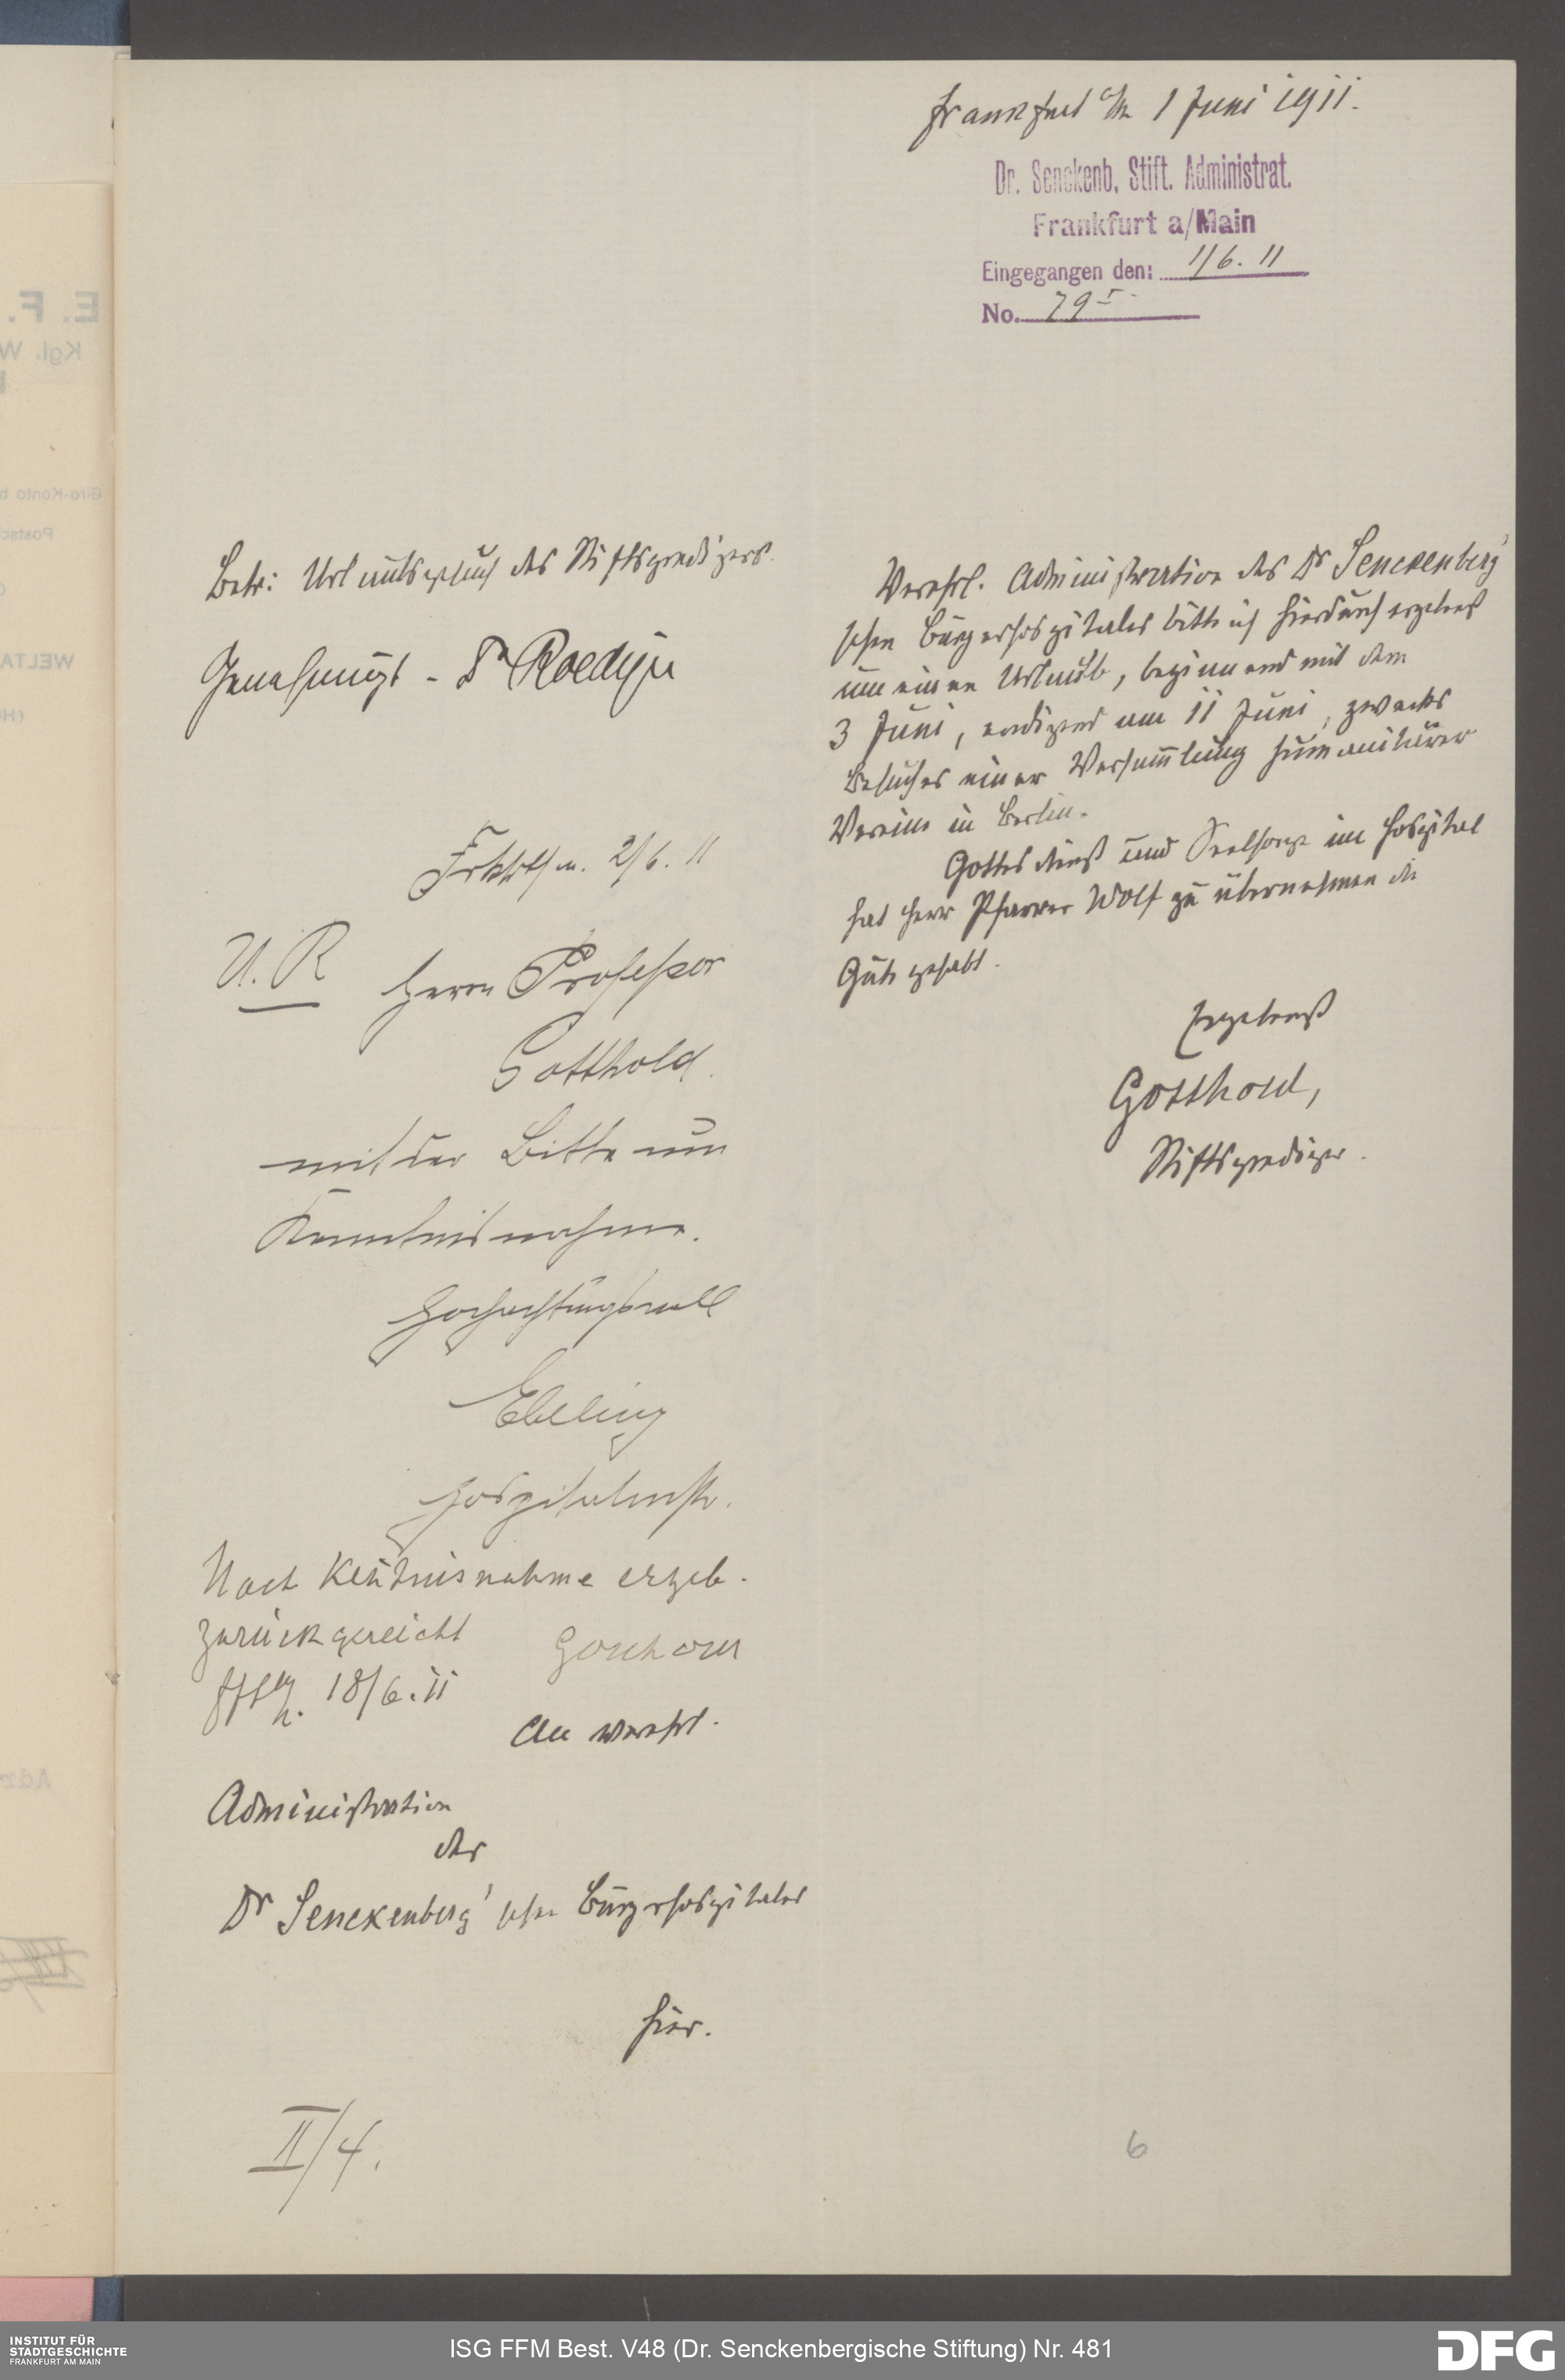 Frankfurt a/M 1 Juni 1911.
Dr. Senckenb. Stift. Administrat.
Frankfurt a/Main
Eingegangen den: 1/6. 11
No. 79
Betr: Urlaubsgesuch des Stiftspredigers.
Genehmigt - Dr Roediger
Frkft a/m. 2/6. 11
U. R Herrn Professor
Gotthold.
mit der Bitte um
Kenntnisnahme.
Hochachtungsvoll
Ebeling
Hospitalmstr.
Nach Keñtnisnahme ergeb.
zurückgereicht Gotthold
18/6. 11
An verehrl.
Administration
des
Dr Senckenberg'schen Bürgerhospitales
hier.
II/4.
Verehrl. Administration des Dr Senckenberg'
schen Bürgerhospitales bitte ich hierdurch ergebenst
um einen Urlaub, beginnend mit dem
3 Juni, endigend am 11 Juni, zwecks
Besuches einer Versam̄lung humanitärer
Vereine in Berlin.
Gottesdienst und Seelsorge im Hospital
hat Herr Pfarrer Wolf zu übernehmen die
Güte gehabt.
Ergebenst
Gotthold,
Stiftsprediger.
6
E. F.
Kgl. W
Giro-Konto b
Postsc
WELTA
Adr
INSTITUT FÜR
STADTGESCHICHTE
FRANKFURT AM MAIN
ISG FFM Best. V48 (Dr. Senckenbergische Stiftung) Nr. 481
DFG